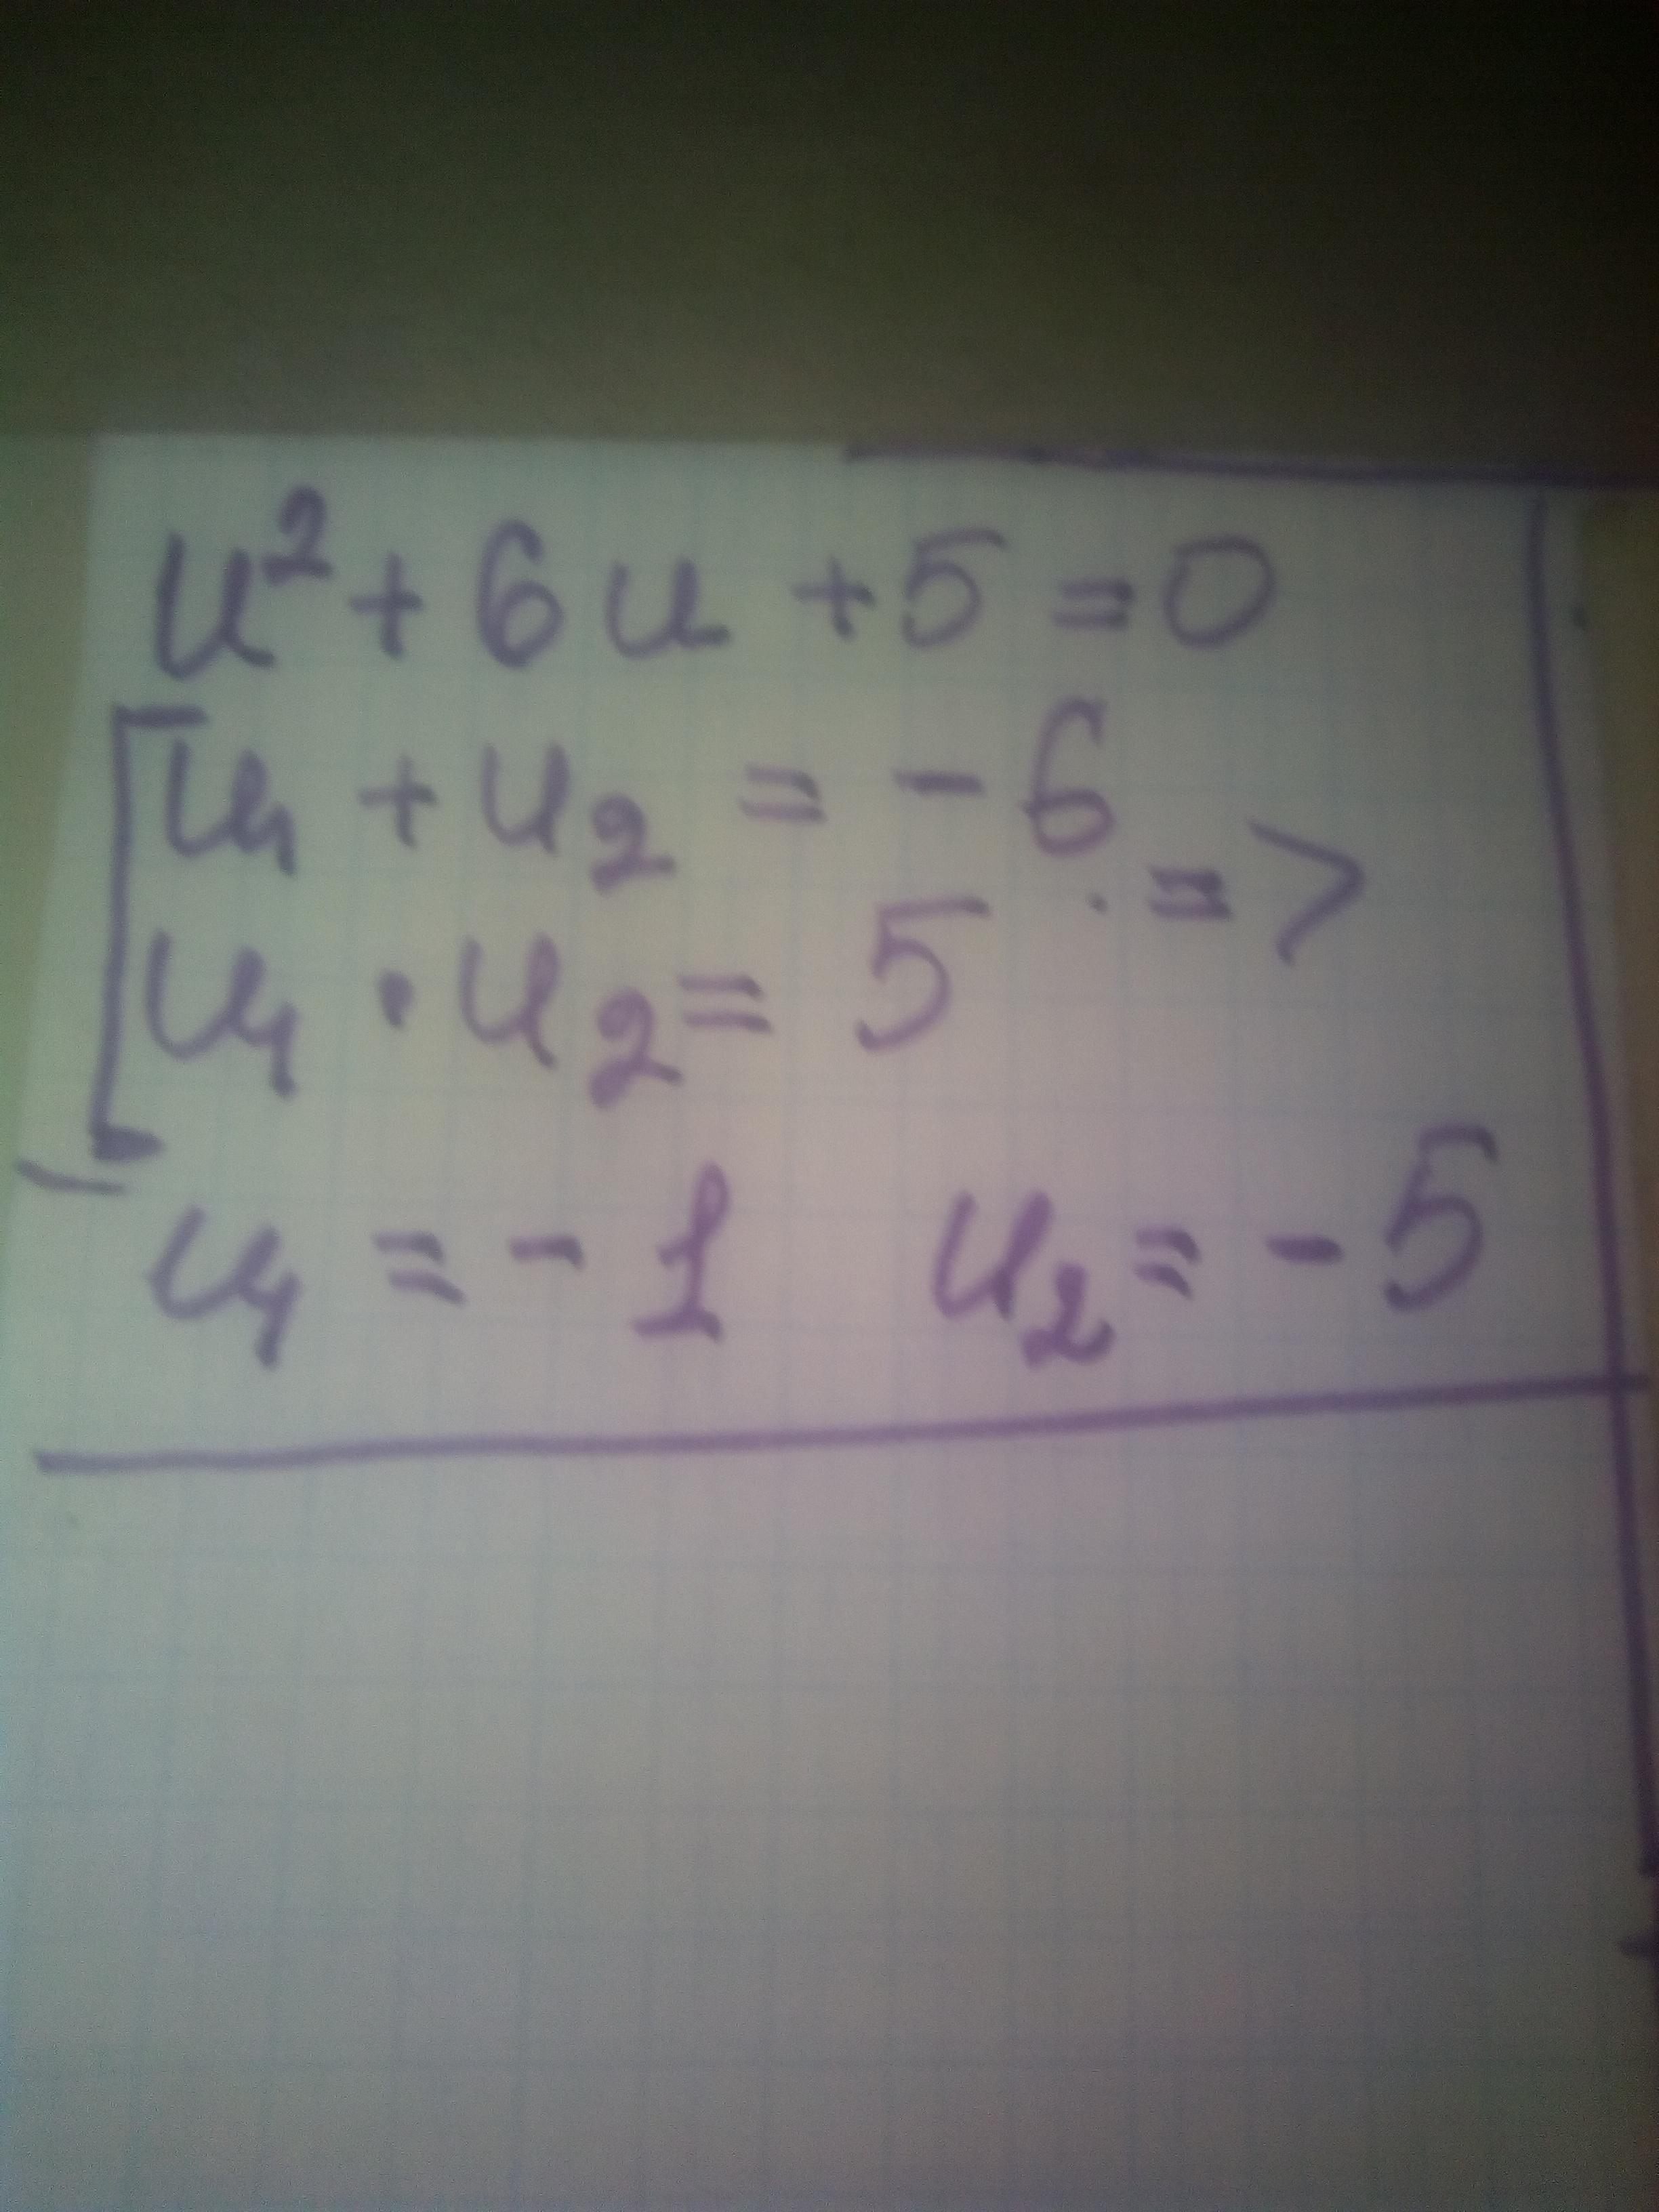 u² + 6u + 5 = 0
[u₁ + u₂ = -6
u₁ · u₂ = 5 . =>
u₁ = -1 u₂ = -5